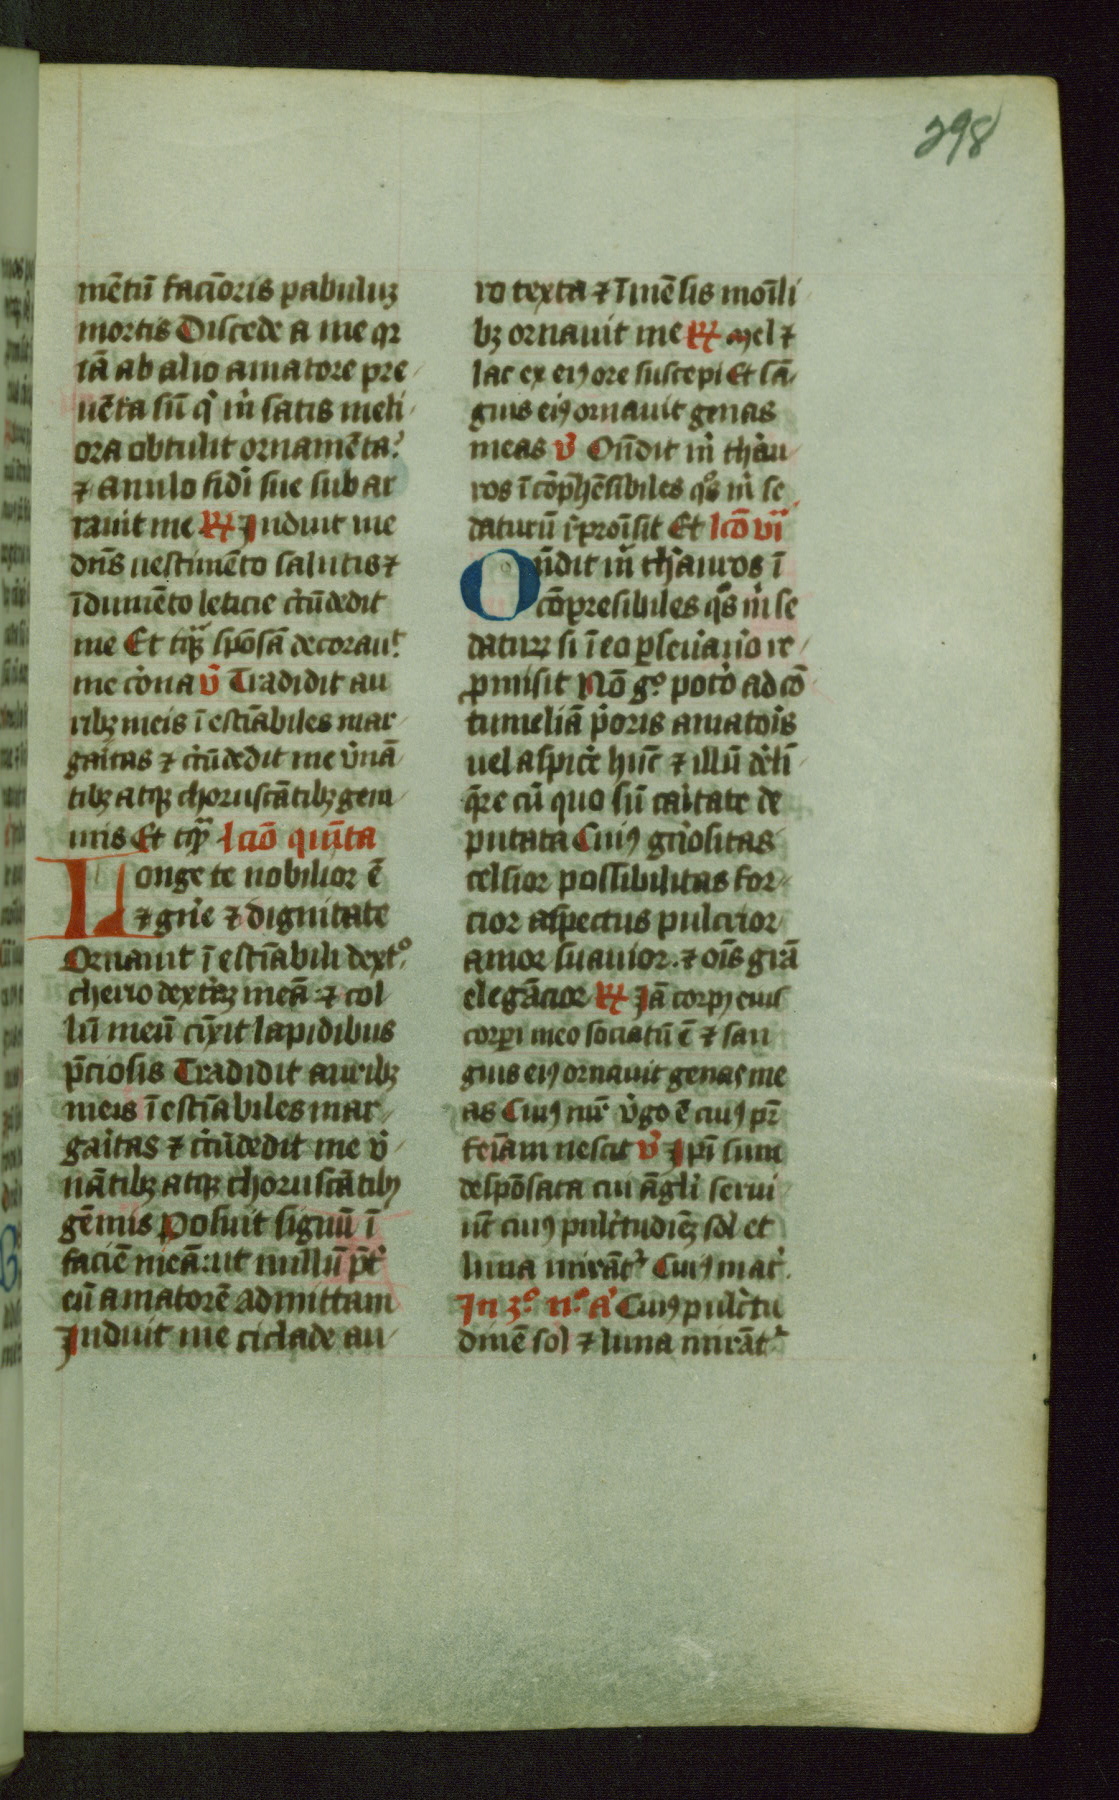 298
mētū facīoris pabuluꝫ
mortis Discede a me qꝛ
iā ab alio amatore pre
uēta sū q̇ m̄ satis meli
ora obtulit ornamēta.
⁊ anulo fidī sue sub ar
rauit me ꝶ Induit me
dn̄s uestimēto salutis ⁊
īdumēto leticie c̄cūdedit
me Et tq̄ꝫ spōsā decorauᵗ
me cōna v̄ Tradidit au
ribꝫ meis īestīabiles mar
gaītas ⁊ c̄cūdedit me v̄nā
tibꝫ atqꝫ choruscātibꝫ gem
mis Et tq̄ꝫ lcīo quīta
Longe te nobilior ē
⁊ gn̄e ⁊ dignitate
Ornauit īestīabili dextᵒ
cherio dexterā meā ⁊ col
lū meū cīxit lapidibus
p̄ciosis Tradidit auribꝫ
meis īestīabiles mar
gaītas ⁊ c̄cūdedit me v̄
nātibꝫ atqꝫ choruscātibꝫ
gēmis Posuit signū ī
faciē meā: ut nullū p̄t̄
eū amatorē admittam
Induit me ciclade au
ro texta ⁊ īmēsis moīli
bꝫ ornauit me ꝶ Mel ⁊
lac ex eiꝰ ore suscepi Et sā
guis eiꝰ ornauit genas
meas v̄ On̄dit m̄ thau
ros īcōp̄hēsibiles qᵒs m̄ se
daturū r̄proīsit Et lcō vi
On̄dit m̄ thauros ī
cōpresibiles qᵒs m̄ se
daturꝫ si ī eo ꝑseuāuo re
ꝓmisit Nō gᵒ potō ad cō
tumeliā p̄oris amatoīs
uel aspicē huc̄ ⁊ illū dēli
q̄re cū quo sū caītate de
putata Cuiꝰ gn̄ositas
celsior possibilitas for
cior aspectus pulcrior
amor suauior . ⁊ oīs grā
elegācior ꝶ Iā corpꝰ eius
corꝑi meo sociatū ē ⁊ san
guis eiꝰ ornauit genas me
as Cuiꝰ mr̄ v̄go ē cuiꝰ pr̄
feīam nescit v̄ Ip̄i sum
despōsata cui āgli serui
ūt cuiꝰ pulc̄tudiēꝫ sol et
luna mirātʳ Cuiꝰ mat̄.
In 3ᵒ nᵒ a̅ Cuiꝰ pulc̄tu
dinē sol ⁊ luna mirātʳ